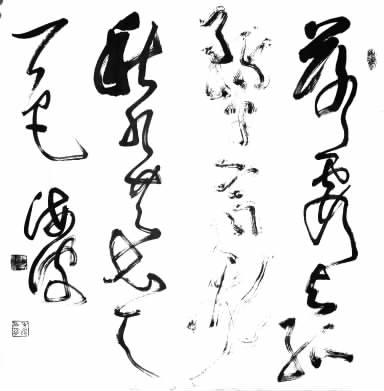 落霞与孤
鹜齐飞
秋水共长天
一色 海波